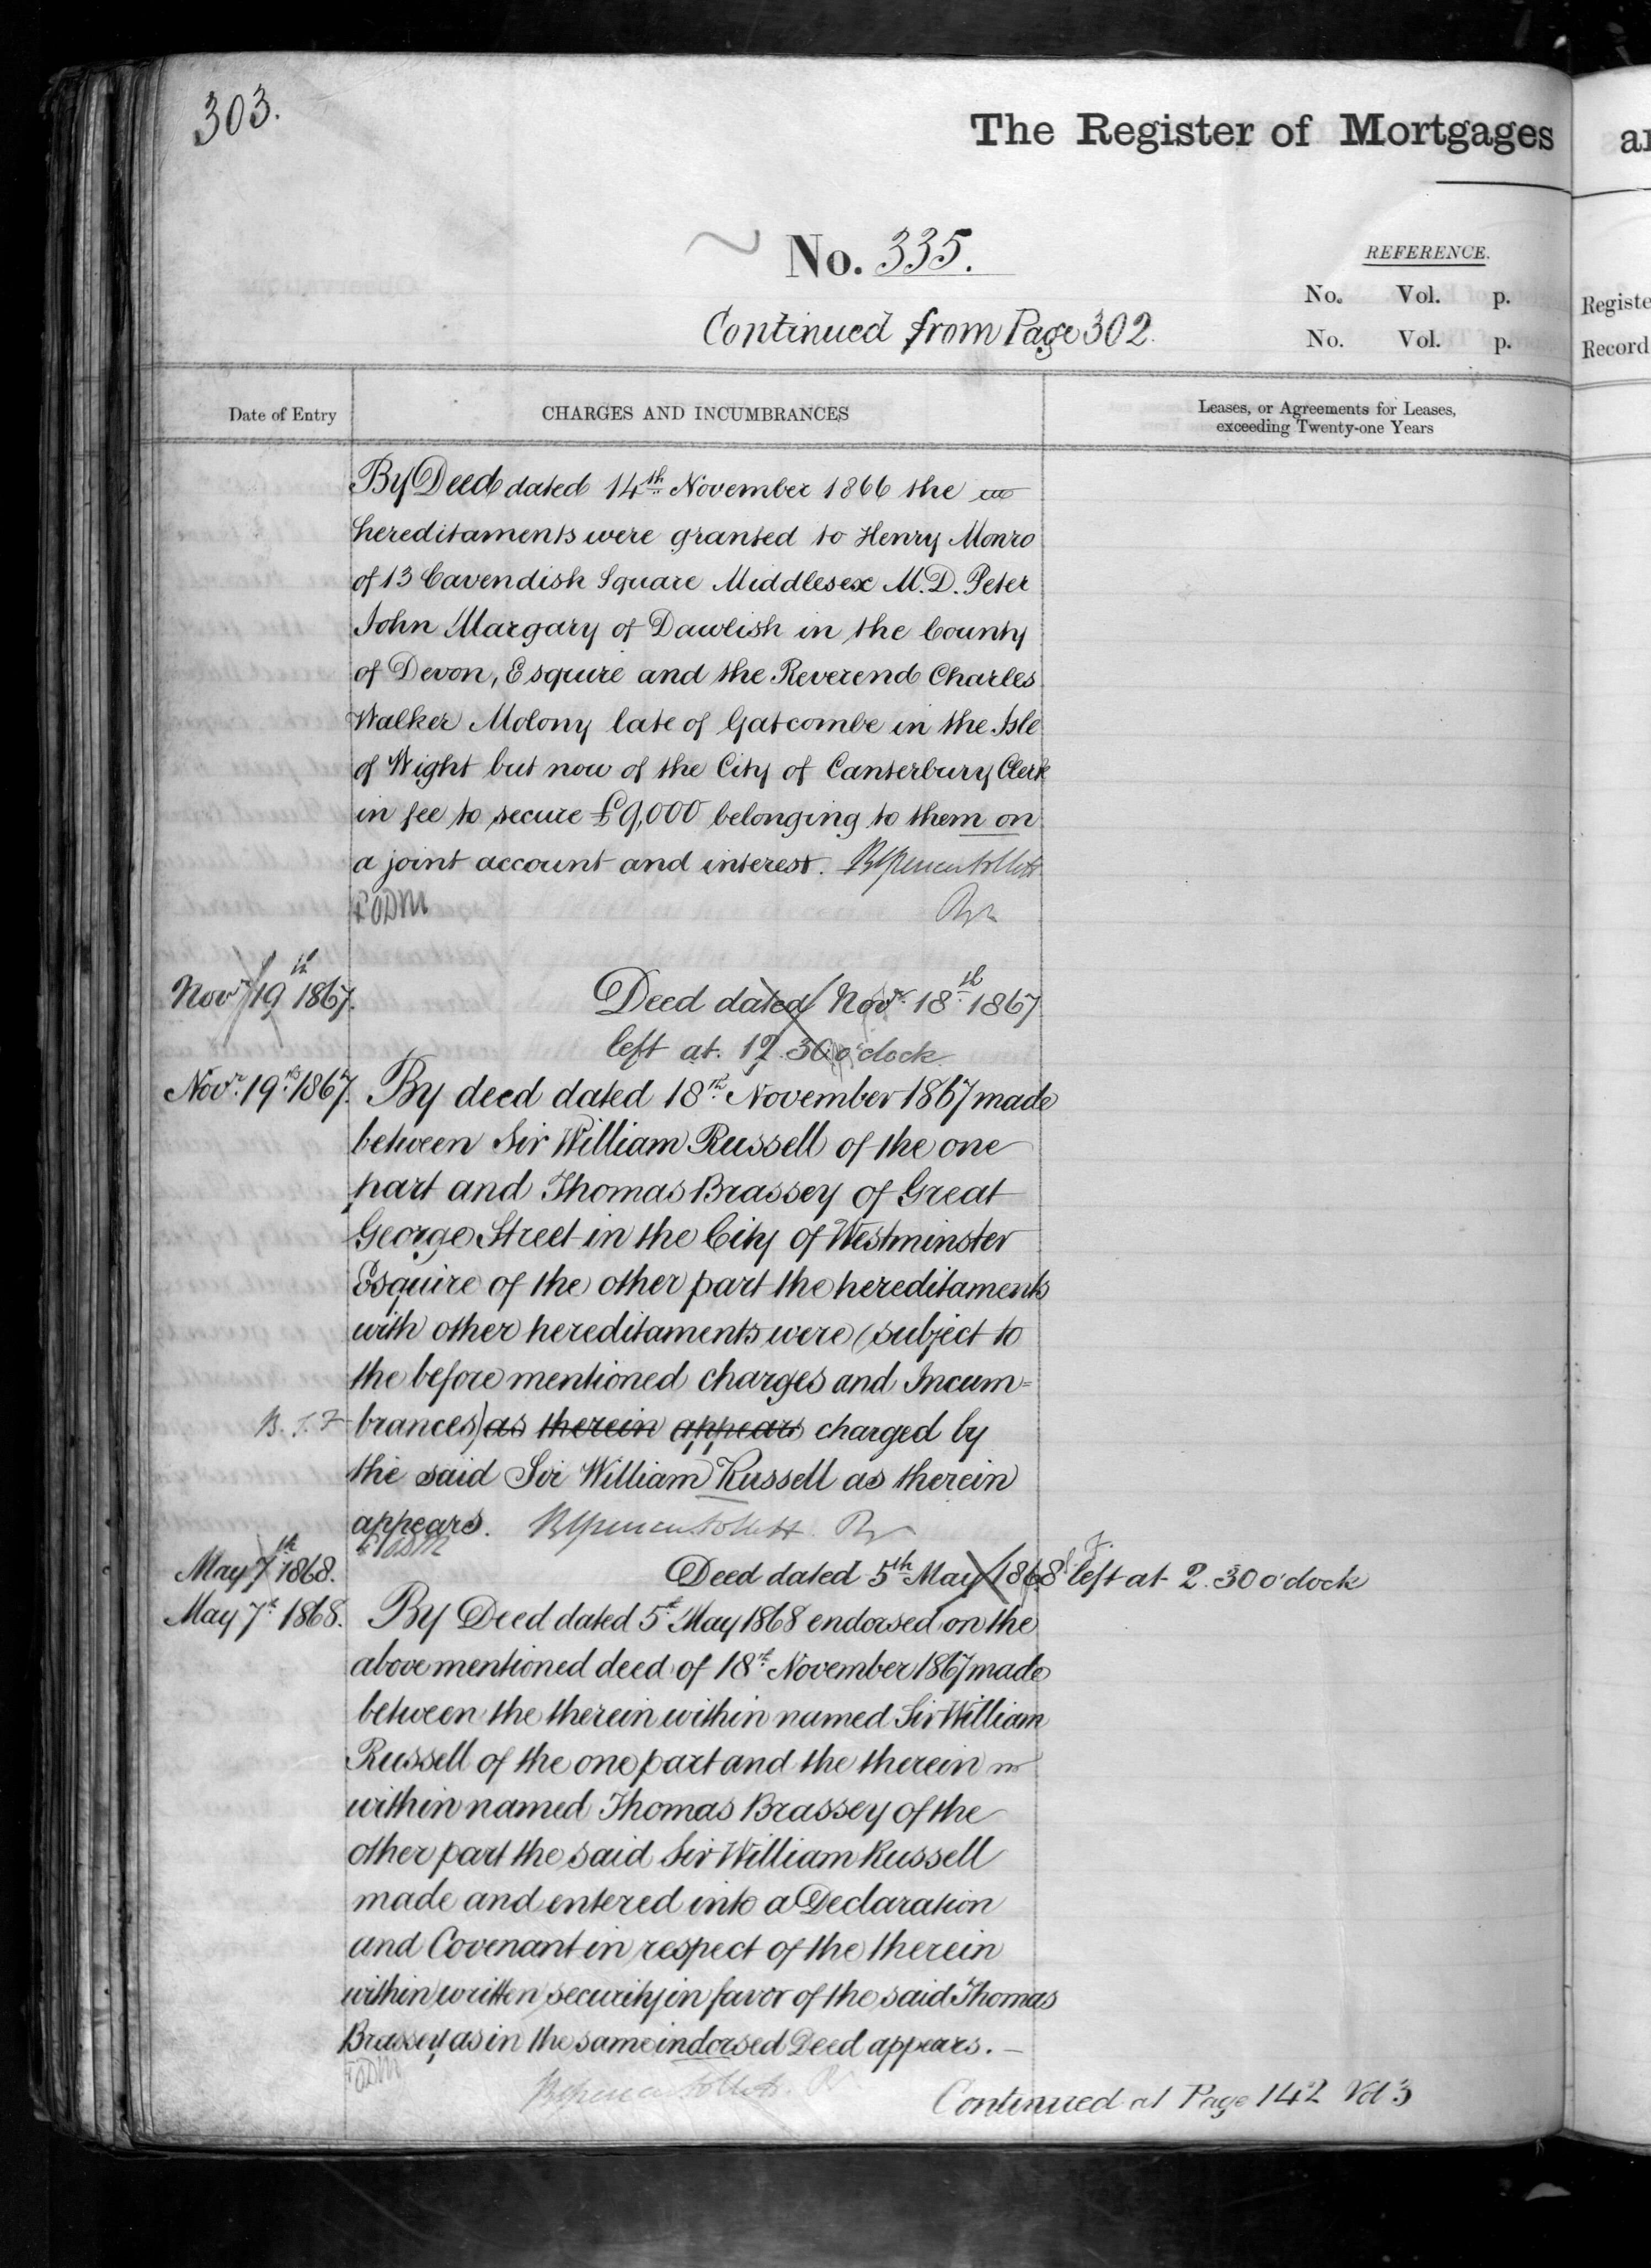 303.
The Register of Mortgages
No. 335.
REFERENCE.
No. Vol. p.
Continued from Page 302.
No. Vol. p.
Registe
Record
Date of Entry
CHARGES AND INCUMBRANCES
Leases, or Agreements for Leases,
exceeding Twenty-one Years
By Deed dated 14th November 1866 the
hereditaments were granted to Henry Monro
of 13 Cavendish Square Middlesex M.D. Peter
John Margary of Dawlish in the County
of Devon, Esquire and the Reverend Charles
Walker Molony late of Gatcombe in the Isle
of Wight but now of the City of Canterbury Clerk
in fee to secure £9,000 belonging to them on
a joint account and interest.
Novr 19th 1867.
Deed dated Novr 18th 1867
left at 12.30 o'clock
Novr 19th 1867. By deed dated 18th November 1867 made
between Sir William Russell of the one
part and Thomas Brassey of Great
George Street in the City of Westminster
Esquire of the other part the hereditaments
with other hereditaments were (subject to
the before mentioned charges and Incum=
brances) as therein appears charged by
the said Sir William Russell as therein
appears.
May 7th 1868.
Deed dated 5th May 1868 left at 2.30 o'clock
May 7th 1868. By Deed dated 5th May 1868 endorsed on the
above mentioned deed of 18th November 1867 made
between the therein within named Sir William
Russell of the one part and the therein
within named Thomas Brassey of the
other part the said Sir William Russell
made and entered into a Declaration
and Covenant in respect of the therein
within written security in favor of the said Thomas
Brassey as in the same indorsed Deed appears.—
Continued at Page 142 Vol 3